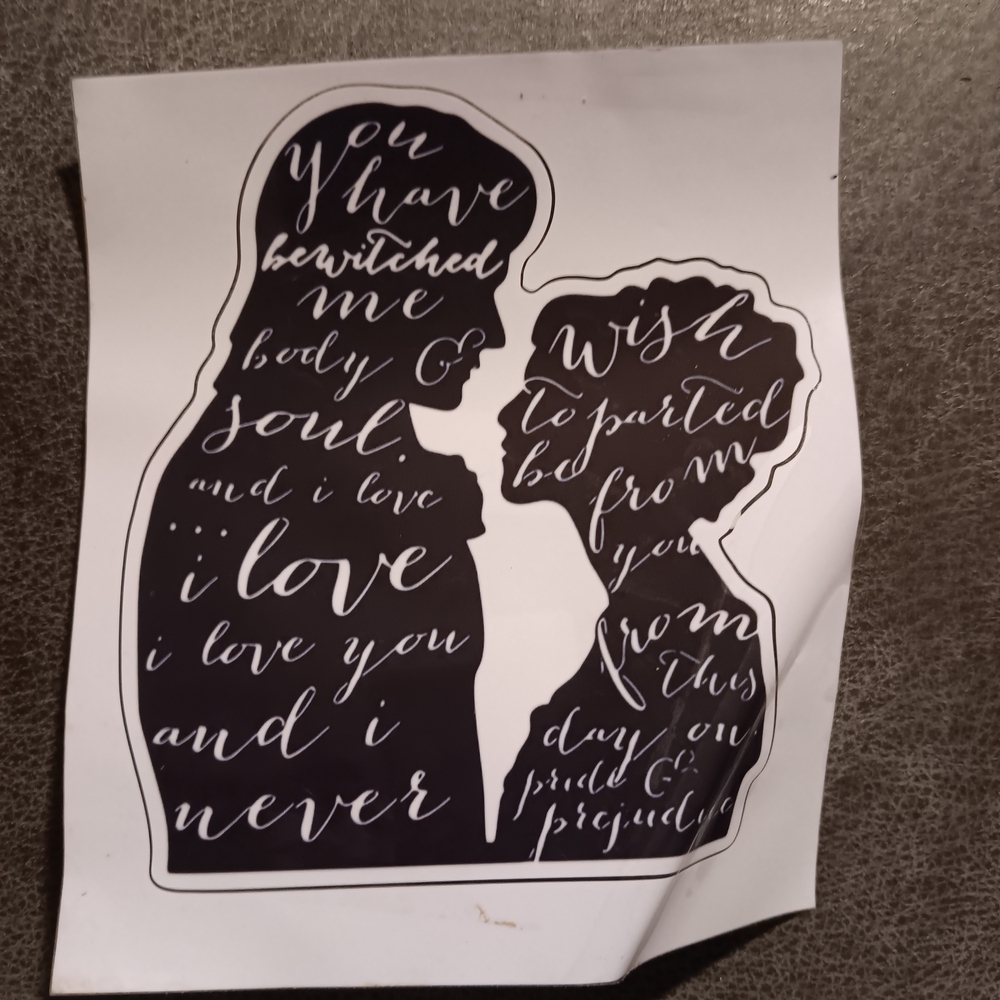 you
have
bewitched
me
body &
soul.
and i love
... i love
i love you
and i
never
wish
to parted
be from
you
from
this
day on.
pride &
prejudice